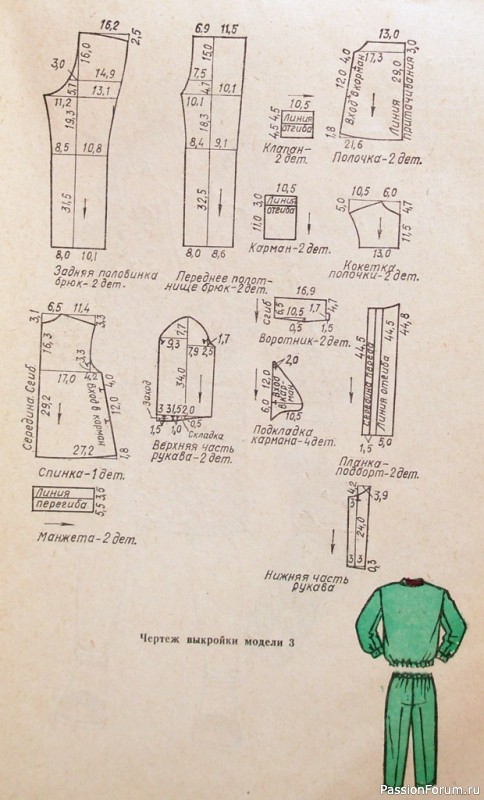 16,2
2,5
16,0
3,0
5,1
14,9
13,1
11,2
19,3
8,5
10,8
31,5
8,0
10,1
Задняя половинка
брюк-2 дет.
6,9
11,5
15,0
7,5
4,7
10,1
10,1
18,3
8,4
9,1
32,5
8,0
8,6
Переднее полот-
нище брюк-2 дет.
10,5
4,5
4,5
Линия
отгиба
Клапан-
2 дет.
13,0
3,0
4,0
17,3
12,0
Вход в карман
29,0
Линия
притачивания
1,8
21,6
Полочка-2 дет.
10,5
3,0
11,0
Линия
отгиба
Карман-2 дет.
10,5
6,0
5,0
4,7
11,5
13,0
Кокетка
полочки-2 дет.
3,1
6,5
11,4
3,3
16,3
3,3
17,0
4,2
4,0
Вход в карман
12,0
29,2
Середина. Сгиб
27,2
1,8
Спинка-1 дет.
7,7
9,3
1,7
7,9
2,5
34,0
Заход
3
3
1,5
2,0
1,5
1,0
0,5
Складка
Верхняя часть
рукава-2 дет.
16,9
Сгиб
6,5
10,5
1,7
4,7
0,5
1,5
Воротник-2 дет.
2,0
12,0
Вход
в кар-
ман
6,0
10,5
Подкладка
кармана-4 дет.
44,5
Середина переда
Линия отгиба
44,5
44,8
1,5
5,0
Планка-
подборт-2 дет.
Линия
перегиба
5,5
Манжета-2 дет.
4,2
3,9
3
24,0
3
3
0,3
Нижняя часть
рукава
Чертеж выкройки модели 3
PassionForum.ru